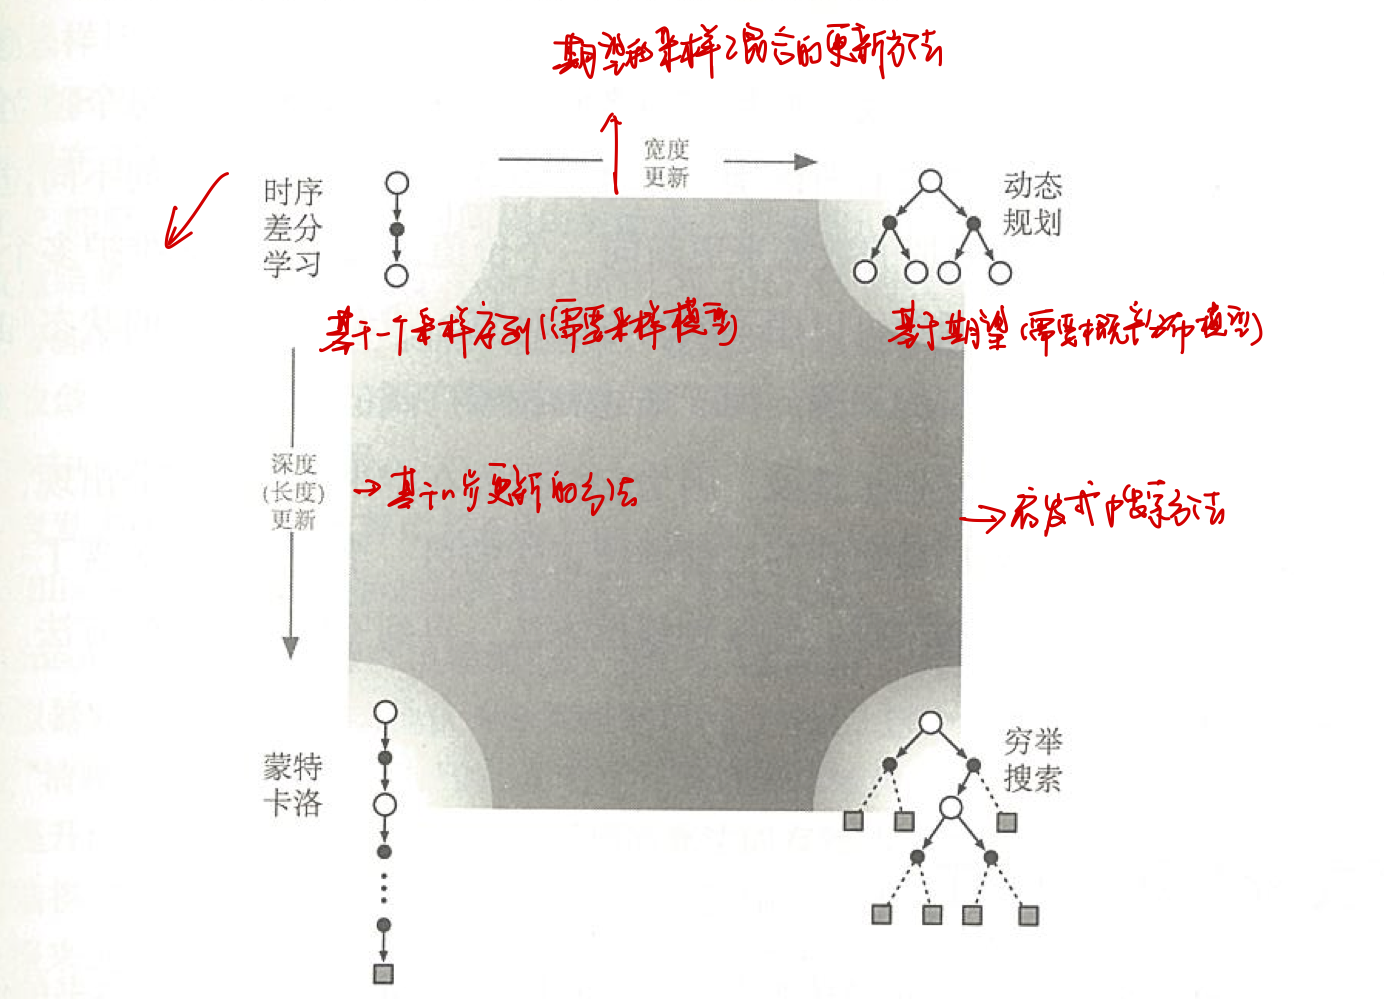 期望和采样混合的更新方法
宽度
更新
时序
差分
学习
动态
规划
基于一个采样序列(需要采样模型)
基于期望(需要概率分布模型)
深度
(长度)
更新
→基于n步更新的方法
→启发式搜索方法
蒙特
卡洛
穷举
搜索